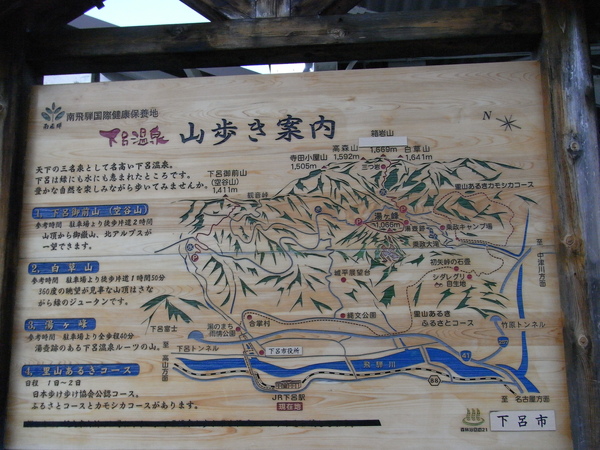 南飛騨国際健康保養地
南飛騨
下呂温泉 山歩き案内
天下の三名泉として名高い下呂温泉。
下呂は緑にも水にも恵まれたところです。
豊かな自然を楽しみながら歩いてみませんか。
1. 下呂御前山(空谷山)
参考時間 駐車場より徒歩片道2時間
山頂から御嶽山、北アルプスが
一望できます。
2. 白草山
参考時間 駐車場より徒歩片道1時間50分
360度の眺望が見事な山頂はさな
がら緑のジュータンです。
3. 湯ヶ峰
参考時間 駐車場より全歩程40分
湯壺跡のある下呂温泉ルーツの山。
4. 里山あるきコース
日程 1日~2日
日本歩け歩け協会公認コース。
ふるさとコースとカモシカコースがあります。
N
箱岩山
1,669m
高森山
1,592m
白草山
1,641m
寺田小屋山
1,505m
三つ岩
下呂御前山
(空谷山)
1,411m
里山あるきカモシカコース
湯ヶ峰
1,066m
楽政キャンプ場
楽政大滝
至 中津川方面
初矢峠の石畳
城平展望台
シダレグリ
自生地
里山あるき
ふるさとコース
縄文公園
合掌村
湯のまち
雨情公園
下呂富士
下呂トンネル
下呂市役所
竹原トンネル
飛騨川
41
257
88
至 高山方面
JR下呂駅
現在地
至 名古屋方面
下呂市